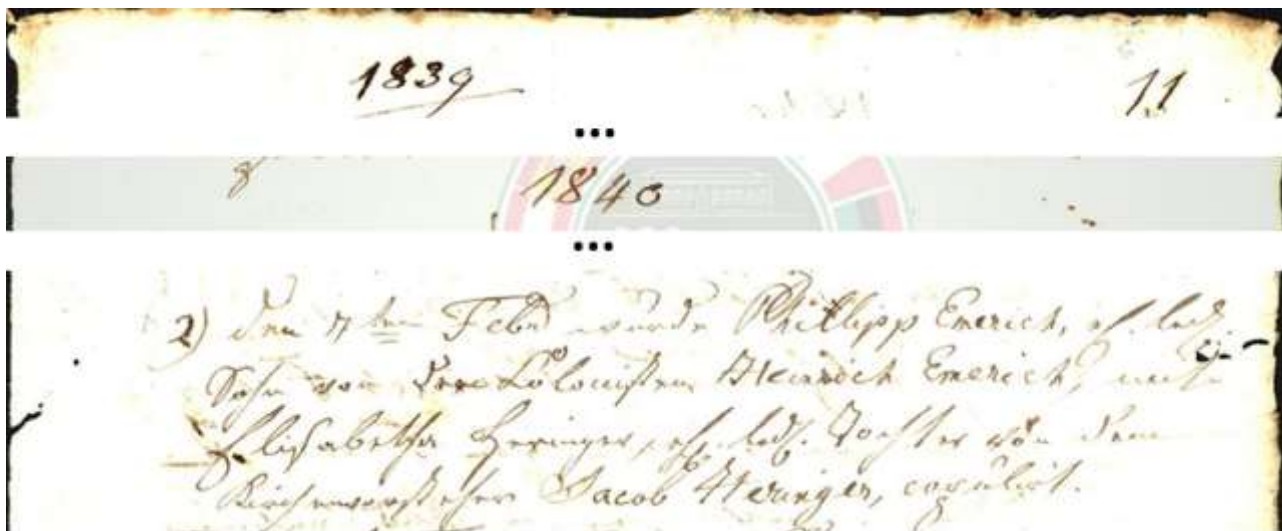 1839
11
...
1840
...
2) den 7ten Febr wurde Phillipp Emerich, ehl. led.
Sohn von dem Colonisten Heinrich Emerich, mit
Elisabetha Heringer, ehl. led. Tochter von dem
Kirchenvorsteher Jacob Heringer, copulirt.